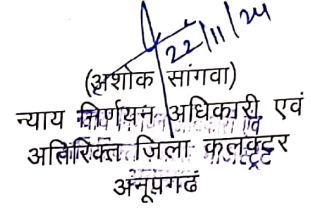 22/11/24
(अशोक सांगवा)
न्याय निर्णयन अधिकारी एवं
अतिरिक्त ज़िला कलक्टर
अनूपगढ